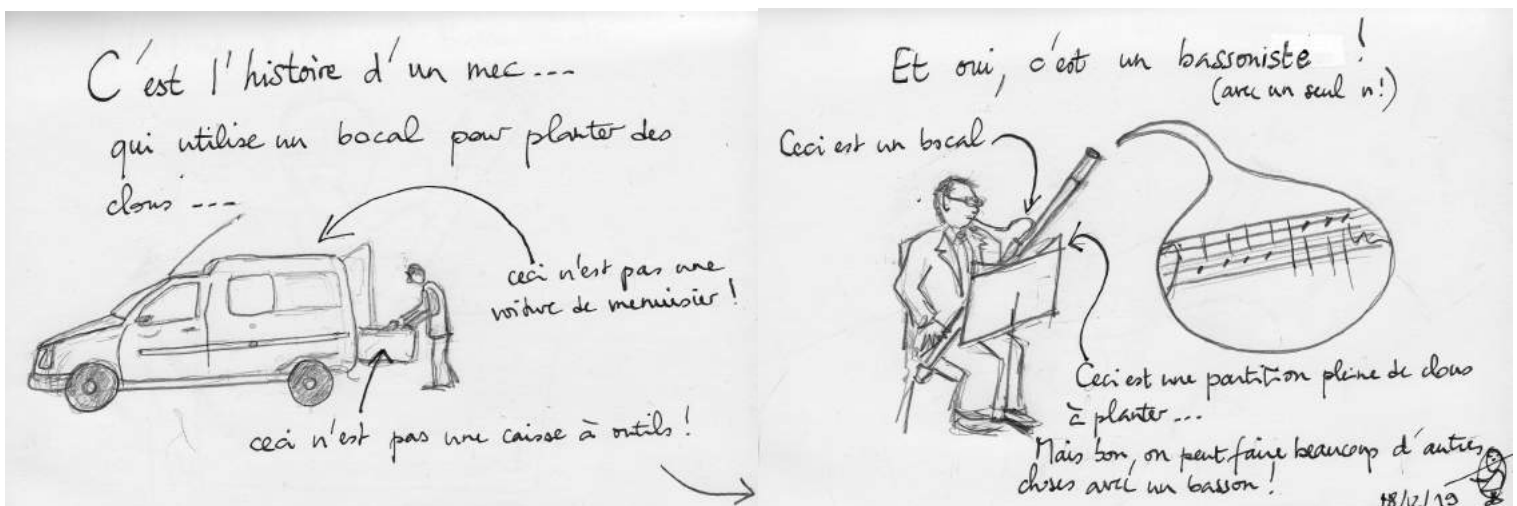 C'est l'histoire d'un mec...
qui utilise un bocal pour planter des
clous ...
ceci n'est pas une
voiture de menuisier !
ceci n'est pas une caisse à outils !
Et oui, c'est un bassoniste !
(avec un seul n !)
Ceci est un bocal
Ceci est une partition pleine de clous
à planter...
Mais bon, on peut faire beaucoup d'autres
choses avec un basson !
18/12/19